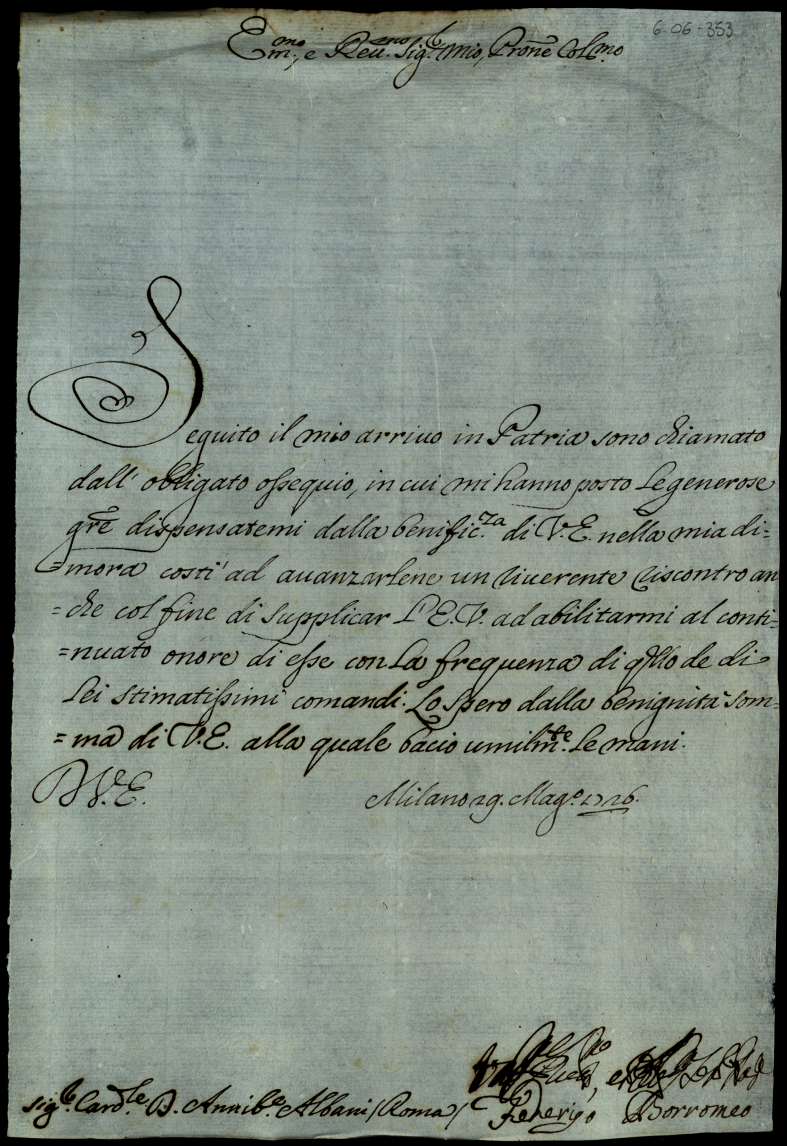 6-06-353
Em.mo, e Reu.mo Sig.r mio, Prone Col.mo
Seguito il mio arriuo in Patria sono chiamato
dall' obligato ossequio, in cui mi hanno posto le generose
gr̃e dispensatemi dalla benific.za di V.E. nella mia di=
=mora costi' ad auanzarlene un riuerente riscontro an
=che col fine di supplicar l'E.V. ad abilitarmi al conti=
=nuato onore di esse con la frequenza di q̃llo de di
Lei stimatissimi comandi. Lo spero dalla benignità som=
=ma di V.E. alla quale bacio umilm.te le mani.
D V.E.
Milano 29. Mag.o 1726.
Sig.r Card.le D. Annib.e Albani / Roma /
Federigo Borromeo